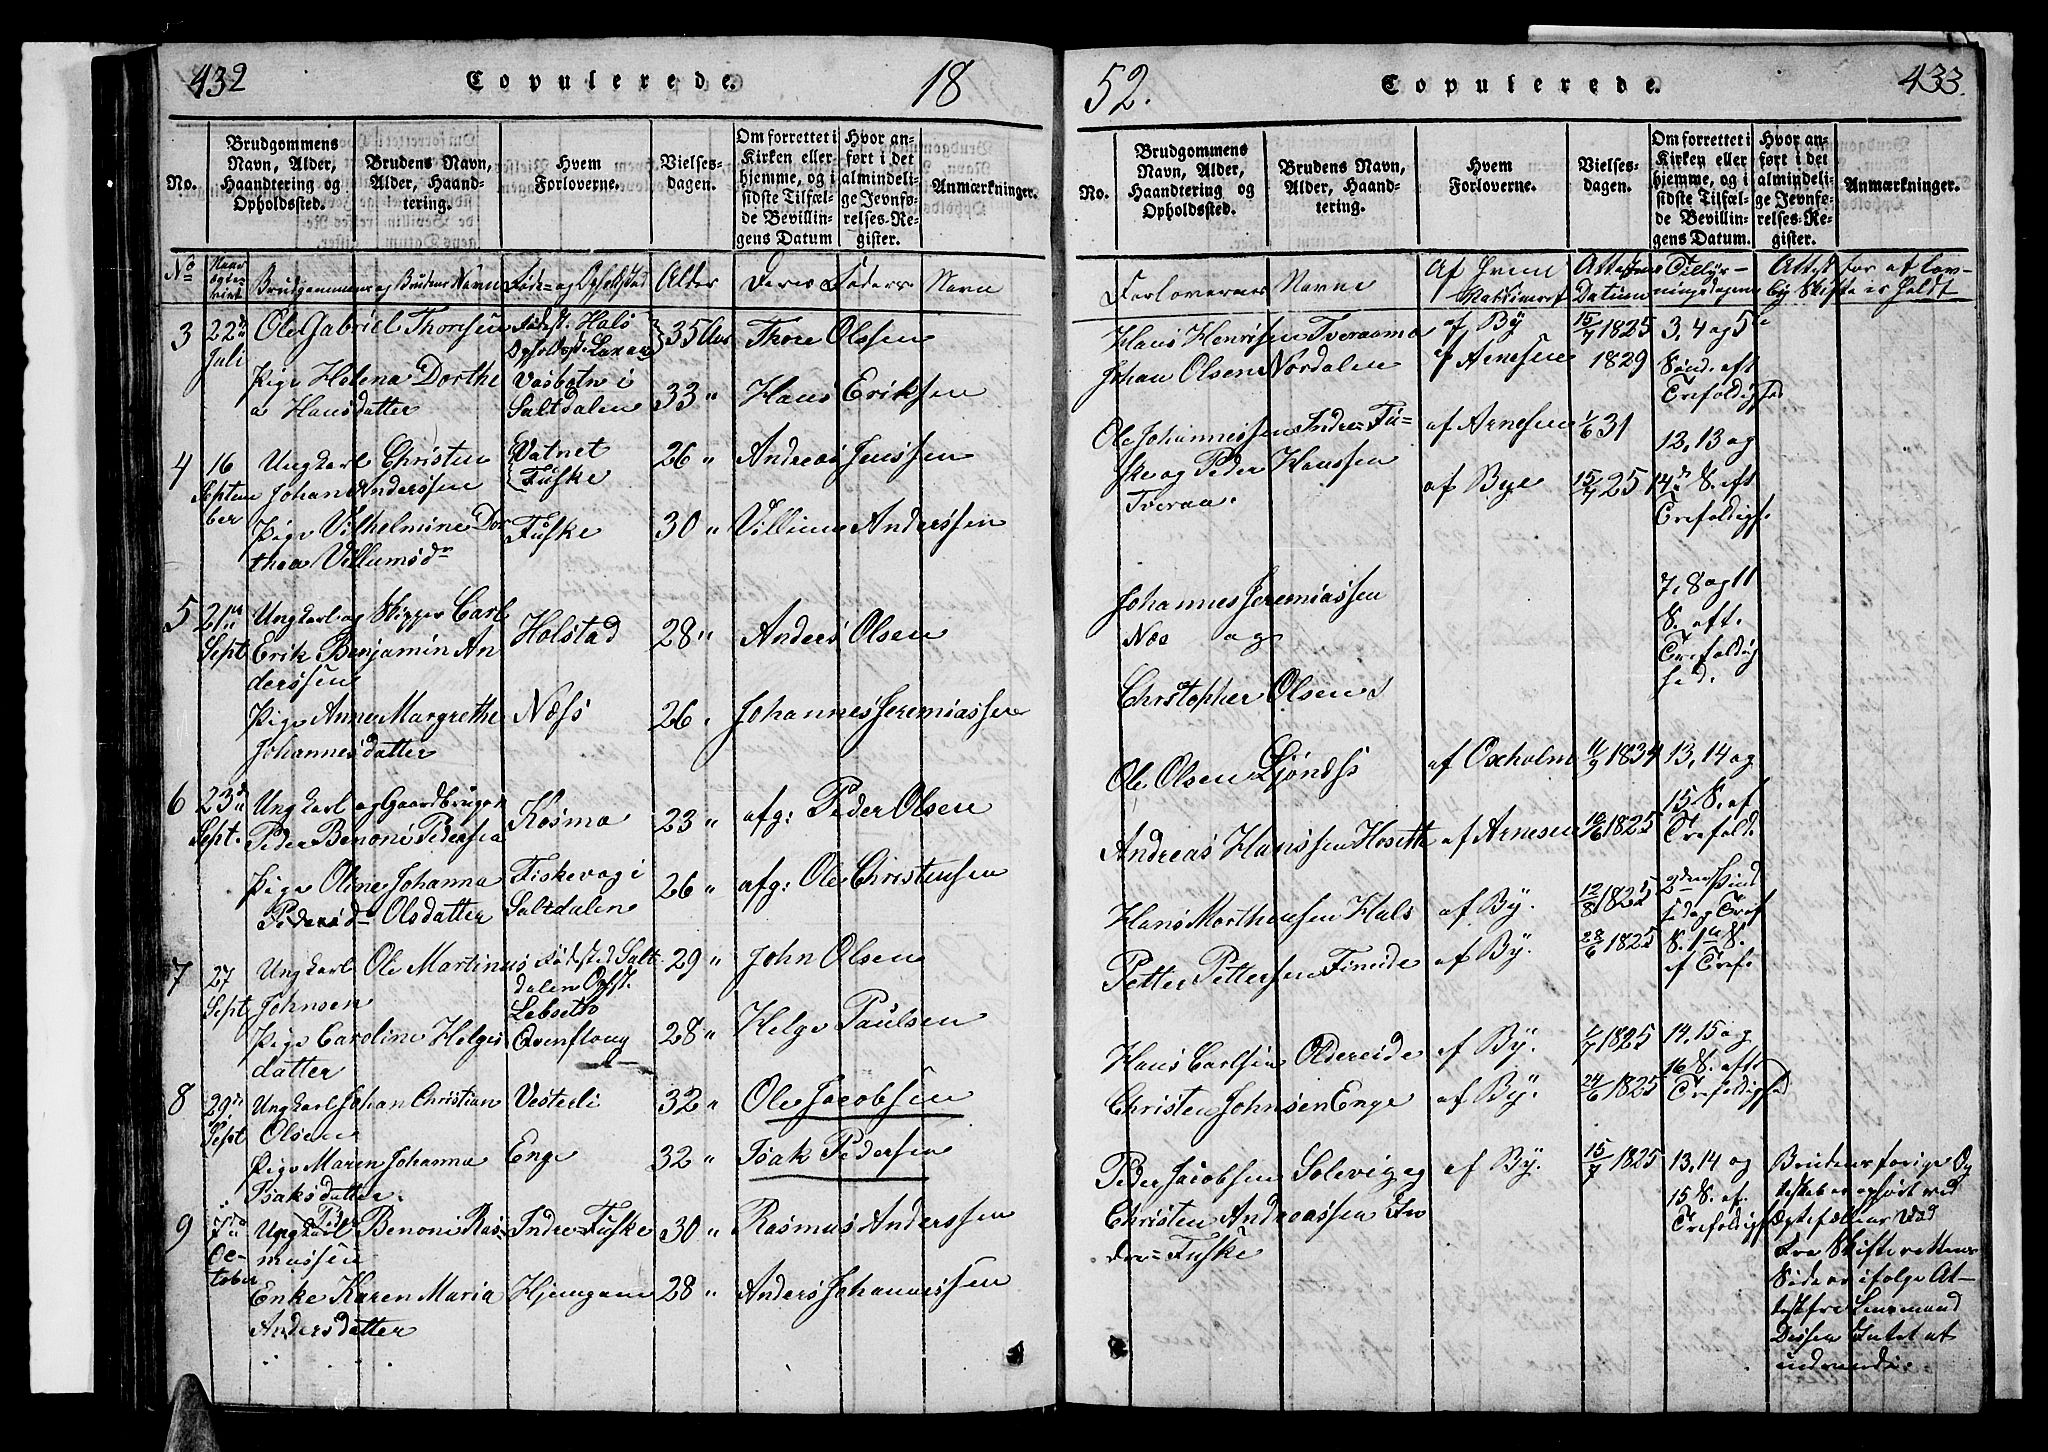 432
Copulerede.
18
No.
Brudgommens
Navn, Alder,
Haandtering og
Opholdssted.
Brudens Navn,
Alder, Haand-
tering.
Hvem
Forloverne.
Vielses-
dagen.
Om forrettet i
Kirken eller
hjemme, og i
sidste Tilfæl-
de Bevillin-
gens Datum
Hvor an-
ført i det
almindeli-
ge Jevnfø-
relses-Re-
gister.
Anmærkninger.
No
Brudgommens og Brudens Navn
Føde- og Opholdsted
Alder
Deres Faders Navn
3
22de
Juli
Ole Gabriel Thoresen
Fødest. Hals
Opholdst.
35 Aar
Thore Olssen
Pige Helena Dorthe
a Hansdatter
Vasbotn i
Saltdalen
33 "
Hans Eriksen
4
16
Septem
ber
Ungkarl Christen
Johan Anderssen
Vatnet
Fuske
26 "
Andreas Jenssen
Pige Vilhelmine Dor
thea Villumsdr
Fuske
30 "
Villum Anderssen
5
21de
Sept
Ungkarl og Skipper Carl
Erik Benjamin An
derssen
Holstad
28 "
Anders Olsen
Pige Anne Margrethe
Johannesdatter
Næss
26 "
Johannes Jeremiassen
6
23de
Sept.
Ungkarl og Gaardbruger
Peder Benoni Pedersen
Kosmo
23 "
afg: Peder Olsen
Pige Oline Johanna
Pedersd Olsdatter
Fiskevag i
Saltdalen
26 "
afg: Ole Christensen
7
27
Sept
Ungkarl Ole Martinus
Johnsen
Fødested Salt
dalen Opst.
Lebseth
29 "
John Olsen
Pige Caroline Helges
datter
Evenflong
28 "
Helge Paulsen
8
29de
Sept
Ungkarl Johan Christian
Olsen
Vesterli
32 "
Ole Jacobsen
Pige Maren Johanna
Isaksdatter.
Enge
32 "
Isak Pedersen
9
7de
Oc-
tober
Peder
Ungkarl Benoni Ras-
mussen
Indre-Fuske
30 "
Rasmus Anderssen
Enke Karen Maria
Andersdatter
Hjemgam
28 "
Anders Johannessen
52.
Copulerede.
433.
No.
Brudgommens
Navn, Alder,
Haandtering og
Opholdssted.
Brudens Navn,
Alder, Haand-
tering.
Hvem
Forloverne.
Vielses-
dagen.
Om forrettet i
Kirken eller
hjemme, og i
sidste Tilfæl-
de Bevillin-
gens Datum.
Hvor an-
ført i det
almindeli-
ge Jevnfø-
relses-Re-
gister.
Anmærkninger.
Forlovernes Navne
Af hvem
Vaksineret
Attestens
Datum
Tillys-
ningsdagene
Attest for at lov-
lig Skifte er holdt
Hans Henrssen Tveraamo
af By
15/7 1825
3, 4 og 5te
Johan Olsen Nordalen
af Arnesen
1829
Sønd. eft
Trefoldighed
Ole Johannessen Indre-Fu-
ske og Peder Hanssen
Tveraa.
af Arnesen
1/6 31
12, 13 og
af Bye
15/7 25
14de S. eft
Trefoldigh.
Johannes Jeremiassen
Næs og
Christopher Olsen
7, 8 og 11
S. eft.
Trefoldig
hed.
Ole Olsen Ljøndss
af Oxholm
11/9 1834
13, 14 og
15 S. af
Trefold.
Andreas Hanssen Hoseth
af Arnesen
10/6 1825
Hans Morthensen Hals
af By.
12/8 1825
2den Pind
sedag Tref
Petter Pettersen Fineide
af By.
28/6 1825
S. 1te S.
af Tref.
Hans Carlsen Oldereide
af By.
1/7 1825
14, 15 og
16 S. eft
Trefoldighed
Christen Johnsen Enge
af By.
24/6 1825
Peder Jacobsen Solevig og
Christen Andreassen In
dre-Fuske
af By.
15/7 1825
13, 14 og
15 S. af.
Trefoldigh.
Brudens forige Eg
teskab er opført ved
Egtefællens Død
Fra Skifterettens
Side er ifølge At-
test fra Lensmand
Dessen Intet at
indvende.